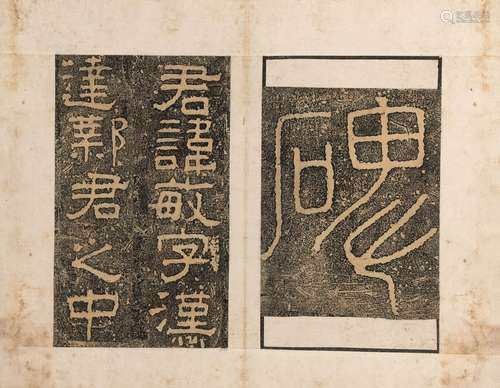 碑
君諱敏字漢
達鄴君之中